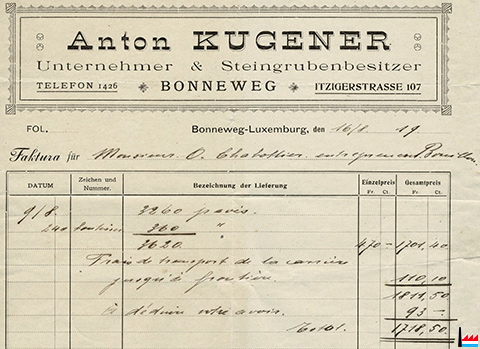 Anton KUGENER
Unternehmer & Steingrubenbesitzer
TELEFON 1426 BONNEWEG ITZIGERSTRASSE 107
FOL. Bonneweg-Luxemburg, den 16/8 19
Faktura für Monsieur O. entrepreneur Bouillon
DATUM Zeichen und Nummer. Bezeichnung der Lieferung Einzelpreis Gesamtpreis
Fr. Ct. Fr. Ct.
9/8. 3260 pavés.
240 360 "
3620. 470 - 1701,40
Frais de transport de la carrière
jusqu'à frontière. 110,10
1811,50
à déduire votre avoir. 93 -
Total. 1718,50